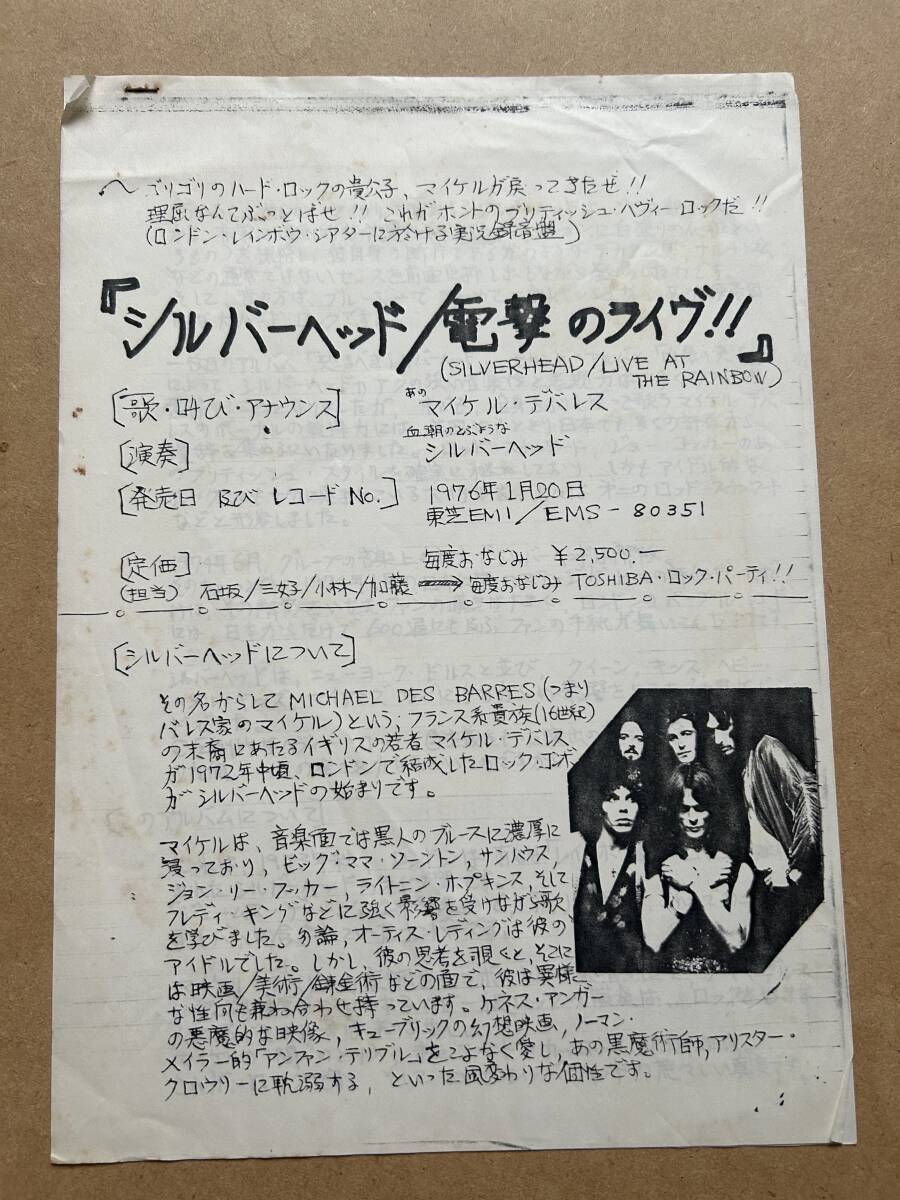 ゴリゴリのハード・ロックの貴公子、マイケルが戻ってきたぜ!!
理屈なんてぶっとばせ!! これがホントのブリティッシュ・ハヴィーロックだ!!
(ロンドン・レインボウ・シアターに於ける実況録音盤)
『シルバーヘッド/電撃のライヴ!!』
(SILVERHEAD/LIVE AT THE RAINBOW)
[歌・叫び・アナウンス] あの マイケル・デバレス
[演奏] 血潮のとぶような シルバーヘッド
[発売日 及び レコード No.] 1976年1月20日
東芝EMI/EMS-80351
[定価] 毎度おなじみ ¥2,500.—
(担当) 石坂/三好/小林/加藤 → 毎度おなじみ TOSHIBA・ロック・パーティ!!
[シルバーヘッドについて]
その名からして MICHAEL DES BARRES (つまり
バレス家のマイケル)という、フランス系貴族(16世紀)
の末裔にあたるイギリスの若者 マイケル・デバレス
が1972年中頃、ロンドンで結成したロック・コンボ
がシルバーヘッドの始まりです。
マイケルは、音楽面では黒人のブルースに濃厚に
浸っており、ビッグ・ママ・ソーントン, サンハウス,
ジョン・リー・フッカー, ライトニン・ホプキンス, そして
フレディ・キングなどに強く影響を受けながら歌
を学びました。勿論, オーティス・レディングは彼の
アイドルでした。しかし, 彼の思考を覗くと, そこに
は映画/美術/錬金術などの面で, 彼は異様
な性向も兼ね合わせ持っています。ケネス・アンガー
の悪魔的な映像, キューブリックの幻想映画, ノーマン・
メイラー的「アンファン・テリブル」をこよなく愛し, あの黒魔術師, アリスター・
クロウリーに耽溺する, といった風変わりな個性です。